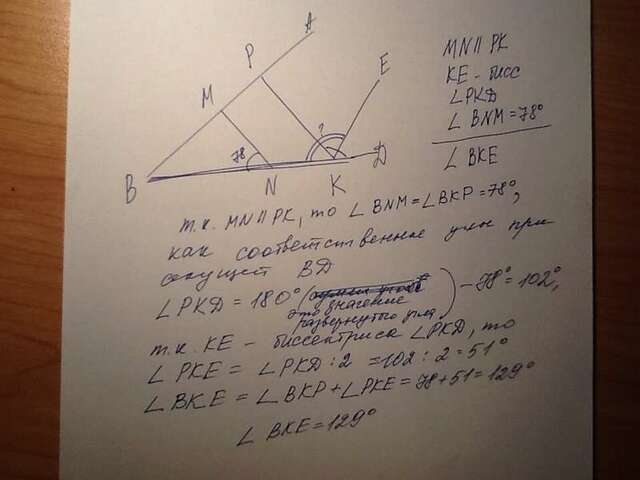 A
P
E
M
78
?
D
B
N
K
MN || PK
KE - бисс
∠PKD
∠BNM = 78°
∠BKE
т.к. MN || PK, то ∠BNM = ∠BKP = 78°,
как соответственные углы при
секущей BD
∠PKD = 180° (это значение развернутого угла) - 78° = 102°,
т.к. KE - биссектриса ∠PKD, то
∠PKE = ∠PKD : 2 = 102 : 2 = 51°
∠BKE = ∠BKP + ∠PKE = 78 + 51 = 129°
∠BKE = 129°